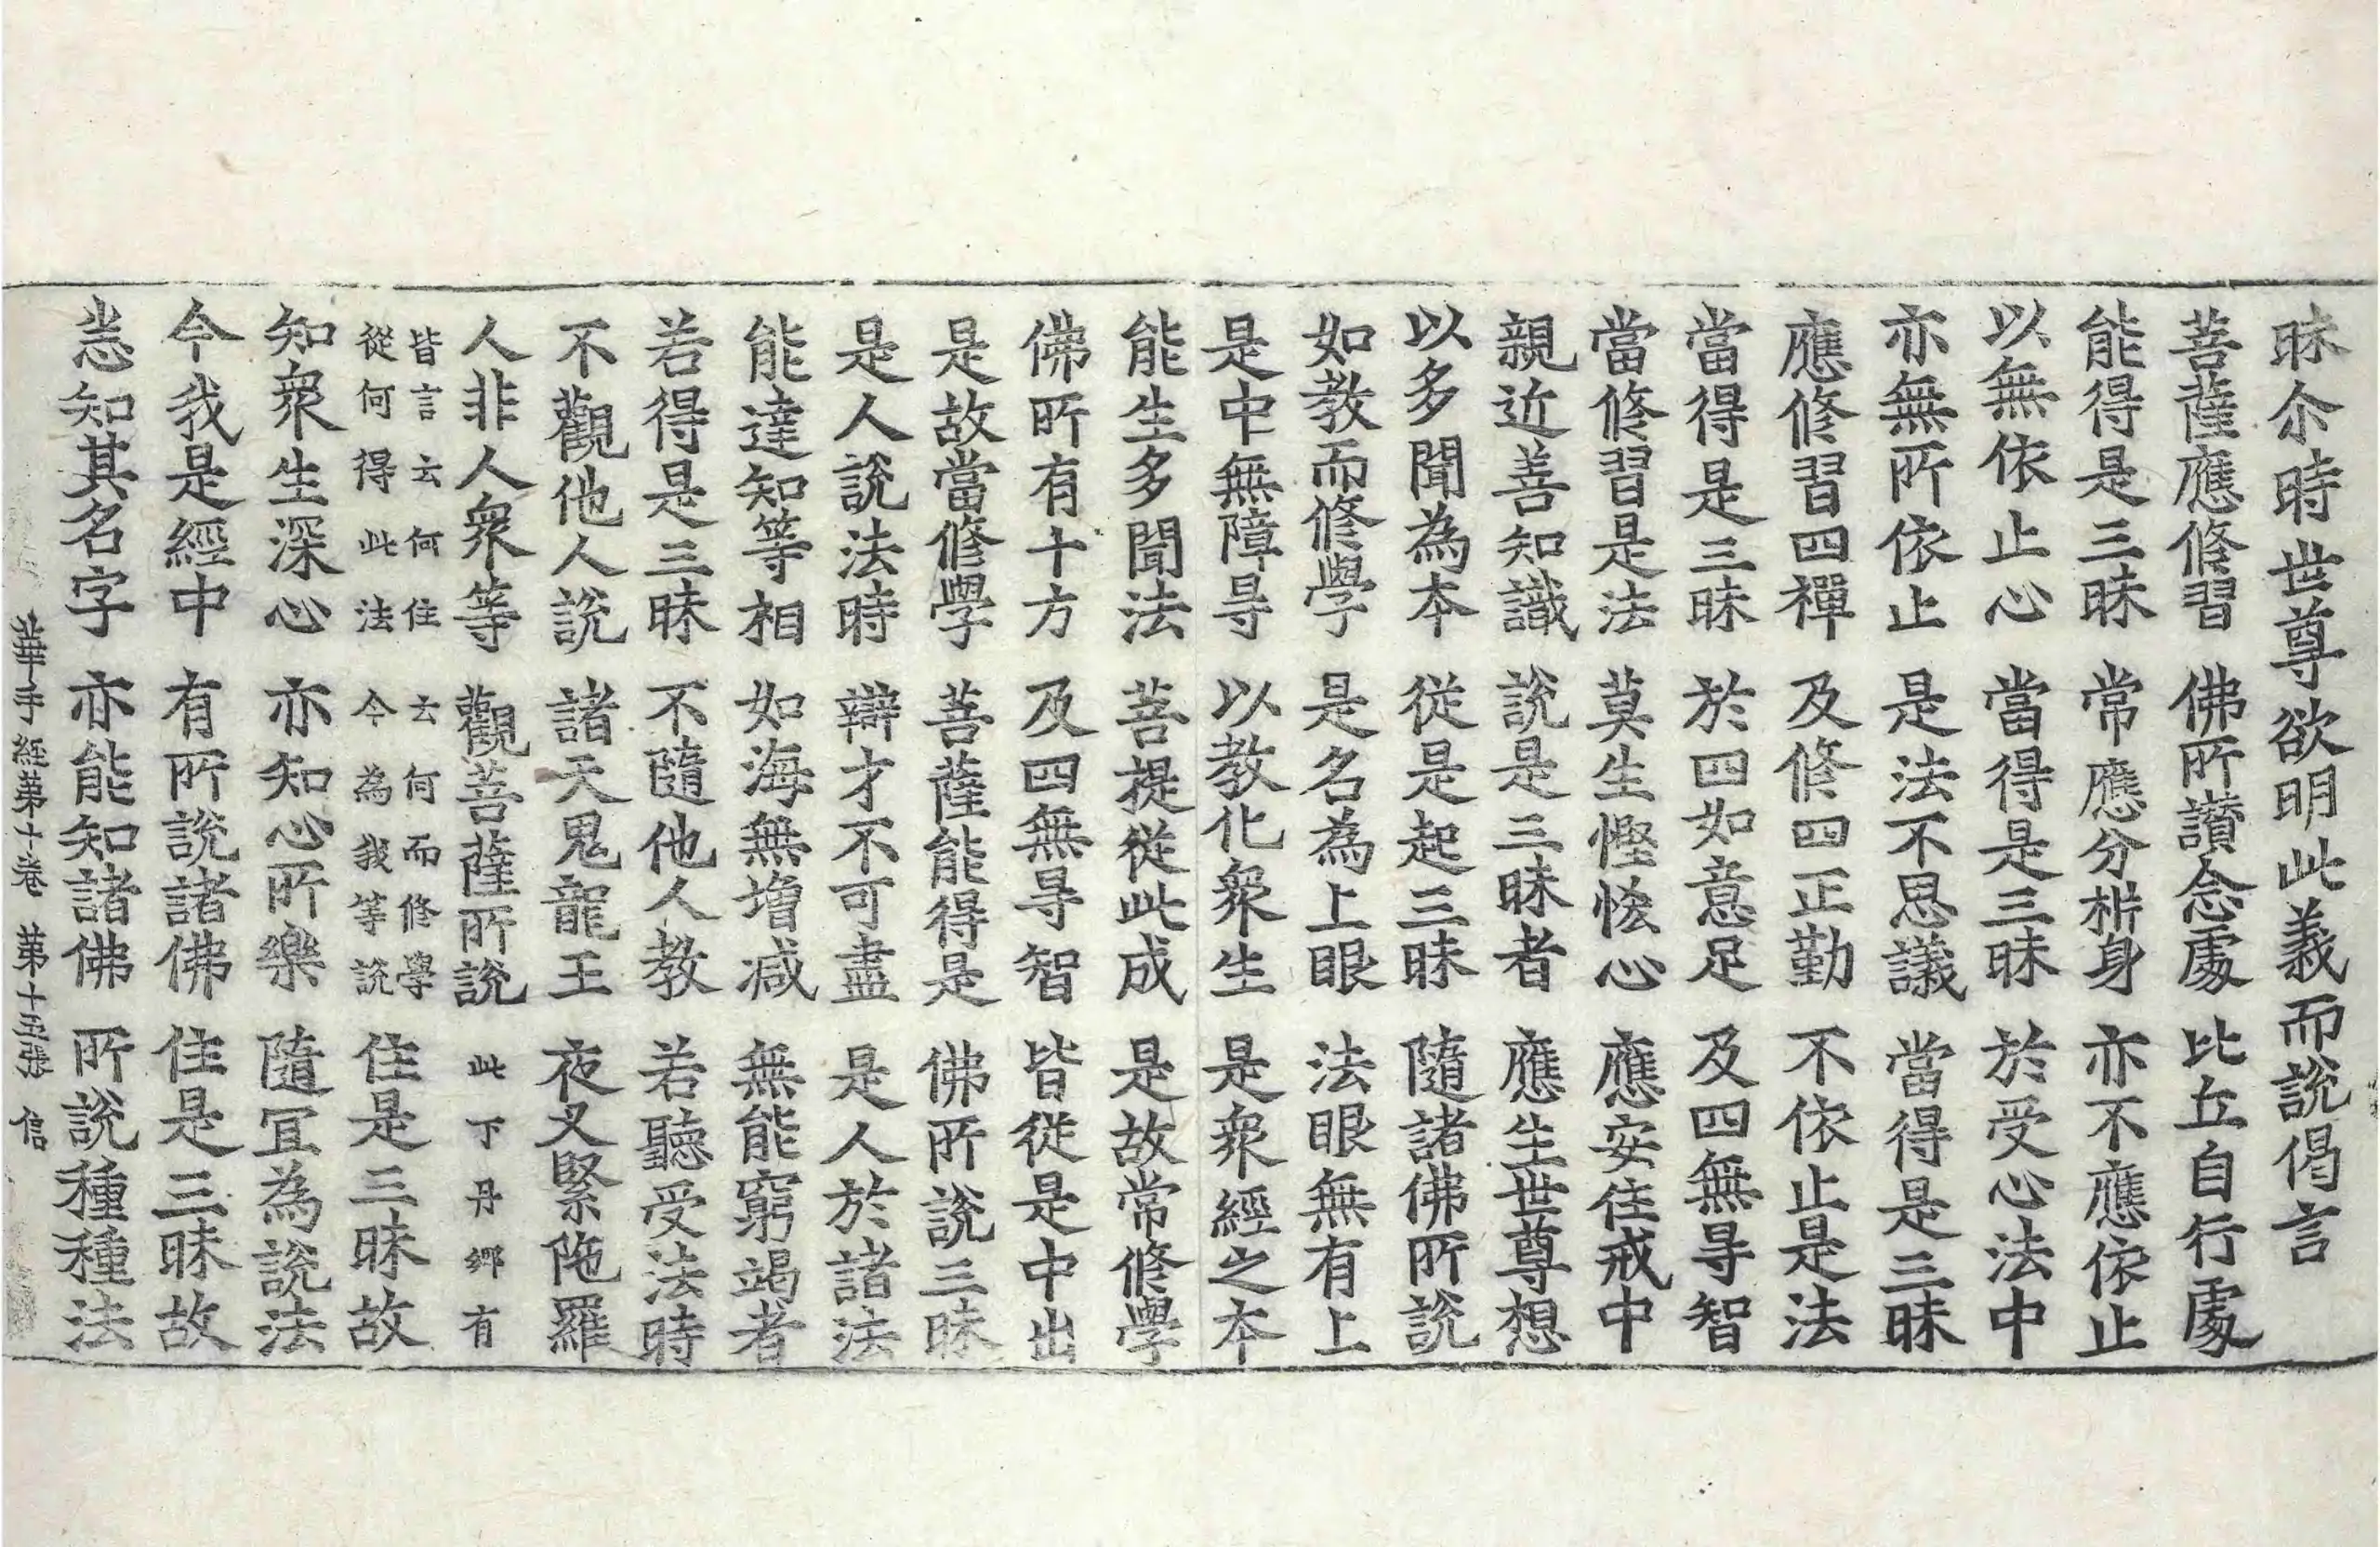 昧尒時世尊欲明此義而說偈言
菩薩應修習 佛所讃念處 比丘自行處
能得是三昧 常應分㭊身 亦不應依止
以無依止心 當得是三昧 於受心法中
亦無所依止 是法不思議 當得是三昧
應修習四禪 及修四正勤 不依止是法
當得是三昧 於四如意足 及四無㝵智
當修習是法 莫生慳悋心 應安住戒中
親近善知識 說是三昧者 應生世尊想
以多聞為本 從是起三昧 隨諸佛所說
如教而修學 是名為上眼 法眼無有上
是中無障㝵 以教化衆生 是衆經之本
能生多聞法 菩提從此成 是故常修學
佛所有十方 及四無㝵智 皆從是中出
是故當修學 菩薩能得是 佛所說三昧
是人說法時 辯才不可盡 是人於諸法
能達知等相 如海無增减 無能窮竭者
若得是三昧 不隨他人教 若聽受法時
不觀他人說 諸天鬼龍王 夜叉緊陁羅
人非人衆等 觀菩薩所說 此下丹鄉有
皆言云何住 云何而修學
從何得此法 今為我等說 住是三昧故
知衆生深心 亦知心所樂 隨冝為說法
今我是經中 有所說諸佛 住是三昧故
悉知其名字 亦能知諸佛 所說種種法
華手経第十卷 第十五張 信